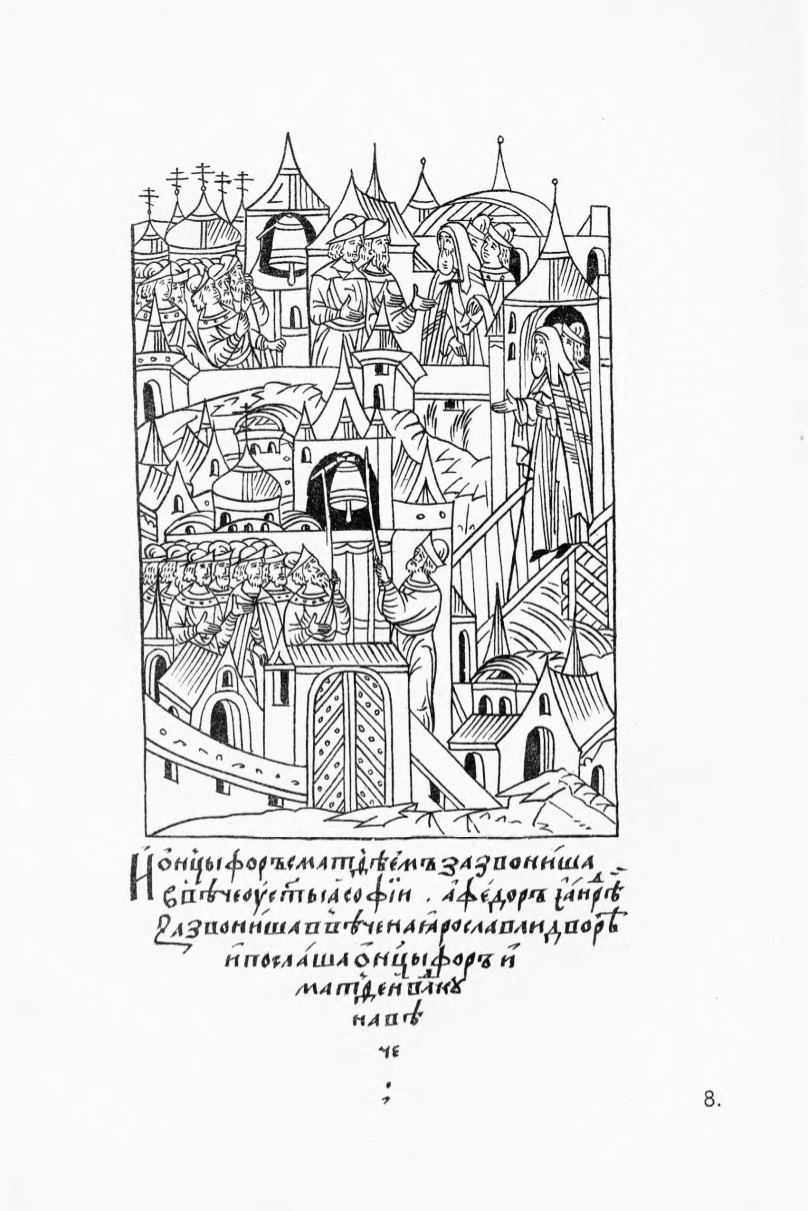 И ѻнцыѳоръ с матѳѣемъ зазвониша
в вѣче оу с҃тыꙗ софїи . а ѳедоръ и андрѣ
зазвониша в вѣче на ꙗрославли дворѣ
и послаша ѻнцыѳоръ и
матѳеи вл҃кꙋ
на вѣ
че
8.